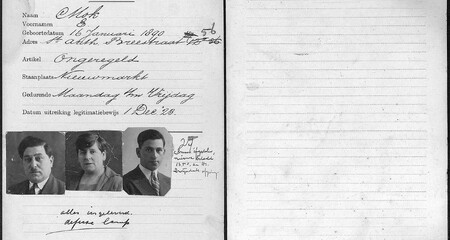 Naam Mok
Voornamen E
Geboortedatum 16 Januari 1890 56
Adres St Anth. Breestraat
Artikel Ongeregeld
Staanplaats Nieuwmarkt
Gedurende Maandag t/m Vrijdag
Datum uitreiking legitimatiebewijs 1 Dec '28.
alles ingeleverd